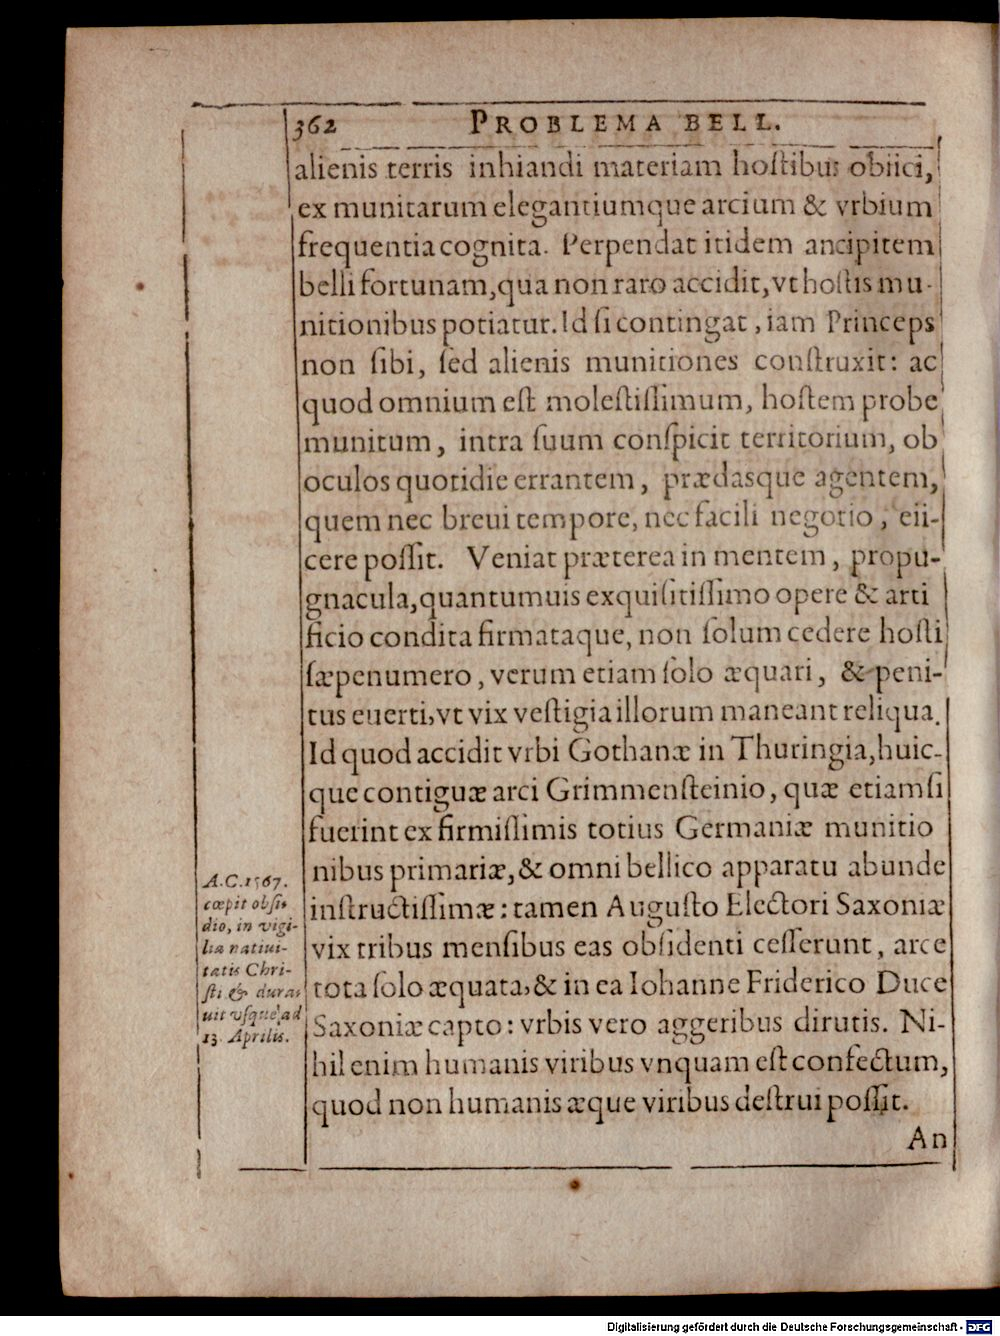 362 PROBLEMA BELL.
alienis terris inhiandi materiam hoſtibus obiici,
ex munitarum elegantiumque arcium & vrbium
frequentia cognita. Perpendat itidem ancipitem
belli fortunam, qua non raro accidit, vt hoſtis mu-
nitionibus potiatur. Id ſi contingat, iam Princeps
non ſibi, ſed alienis munitiones conſtruxit: ac
quod omnium eſt moleſtiſſimum, hoſtem probe
munitum, intra ſuum conſpicit territorium, ob
oculos quotidie errantem, prædasque agentem,
quem nec breui tempore, nec facili negotio, eii-
cere poſſit. Veniat præterea in mentem, propu-
gnacula, quantumuis exquiſitiſſimo opere & arti
ficio condita firmataque, non ſolum cedere hoſti
ſæpenumero, verum etiam ſolo æquari, & peni-
tus euerti, vt vix veſtigia illorum maneant reliqua.
Id quod accidit vrbi Gothanæ in Thuringia, huic-
que contiguæ arci Grimmenſteinio, quæ etiamſi
fuerint ex firmiſſimis totius Germaniæ munitio
nibus primariæ, & omni bellico apparatu abunde
inſtructiſſimæ: tamen Auguſto Electori Saxoniæ
vix tribus menſibus eas obſidenti ceſſerunt, arce
tota ſolo æquata, & in ea Iohanne Friderico Duce
Saxoniæ capto: vrbis vero aggeribus dirutis. Ni-
hil enim humanis viribus vnquam eſt confectum,
quod non humanis æque viribus deſtrui poſſit.
An
A.C. 1567.
cœpit obſi-
dio, in vigi-
lia natiui-
tatis Chri-
ſti & dura-
uit vſque ad
13. Aprilis.
Digitalisierung gefördert durch die Deutsche Forschungsgemeinschaft - DFG